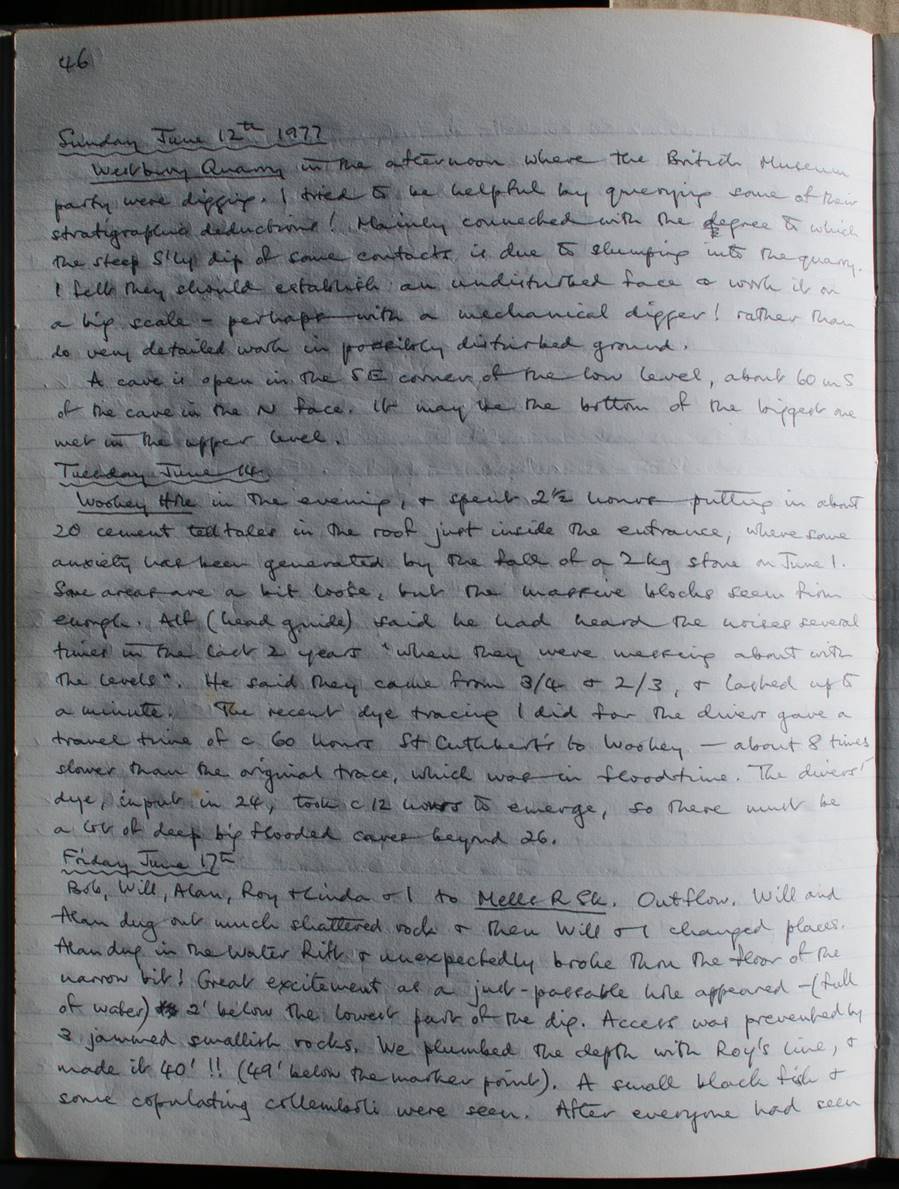 46
Sunday June 12th 1977
Westbury Quarry in the afternoon where the British Museum
party were digging. I tried to be helpful by querying some of their
stratigraphic deductions! Mainly connected with the degree to which
the steep S'ly dip of some contacts is due to slumping into the quarry.
I felt they should establish an undisturbed face & work it on
a big scale - perhaps with a mechanical digger! rather than
do very detailed work in possibly disturbed ground.
A cave is open in the SE corner of the low level, about 60m S
of the cave in the N face. It may be the bottom of the biggest one
met in the upper level.
Tuesday June 14
Wookey Hole in the evening, & spent 2½ hours putting in about
20 cement telltales in the roof just inside the entrance, where some
anxiety has been generated by the fall of a 2kg stone on June 1.
Some areas are a bit loose, but the massive blocks seem firm
enough. Alf (head guide) said he had heard the noises several
times in the last 2 years "when they were messing about with
the levels". He said they came from 3/4 & 2/3, & lasted up to
a minute. The recent dye tracing I did for the divers gave a
travel time of c 60 hours St Cuthbert's to Wookey — about 8 times
slower than the original trace, which was in floodtime. The divers'
dye, input in 24, took c 12 hours to emerge, so there must be
a lot of deep big flooded caves beyond 26.
Friday June 17th
Bob, Will, Alan, Roy & Linda & I to Mells R Sk. Outflow. Will and
Alan dug out much shattered rock & then Will & I changed places.
Alan dug in the Water Rift & unexpectedly broke thru the floor of the
narrow bit! Great excitement as a just-passable hole appeared - (full
of water) 2' below the lowest part of the dig. Access was prevented by
3 jammed smallish rocks. We plumbed the depth with Roy's line, &
made it 40' !! (49' below the marker point). A small black fish &
some copulating collemboli were seen. After everyone had seen